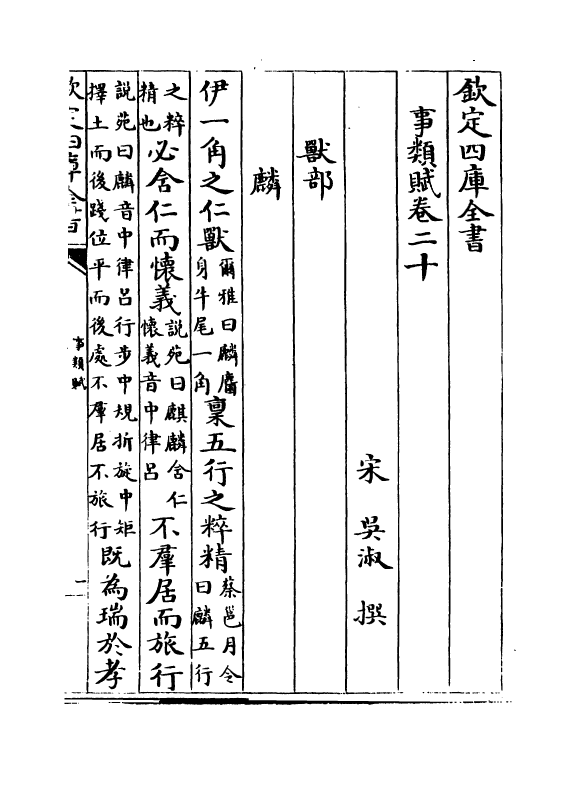 欽定四庫全書
事類賦卷二十
宋 吳淑 撰
獸部
麟
伊一角之仁獸爾雅曰麟麕身牛尾一角稟五行之粹精蔡邕月令曰麟五行
之粹精也必含仁而懷義説苑曰麒麟含仁懷義音中律呂不羣居而旅行
説苑曰麟音中律呂行步中規折旋中矩擇土而後踐位平而後處不羣居不旅行既為瑞於孝
欽定四庫全書
事類賦
一